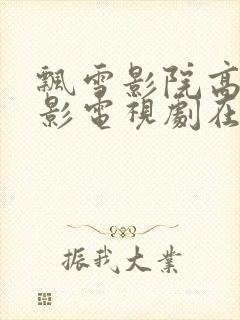 飄雪影院高
影電視劇在
振我大業